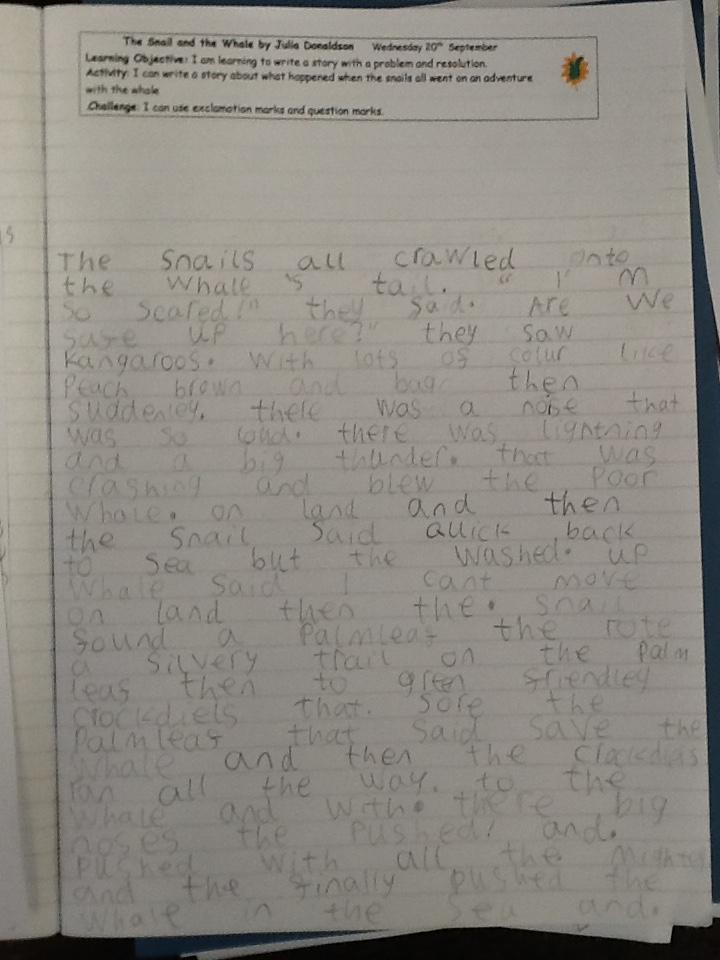 The Snail and the Whale by Julia Donaldson Wednesday 20th September
Learning Objective: I am learning to write a story with a problem and resolution.
Activity: I can write a story about what happened when the snails all went on an adventure
with the whale
Challenge: I can use exclamation marks and question marks.
The Snails all crawled onto
the Whale's tail. "I'm
So Scared!" they Said. Are We
safe up here?" they saw
Kangaroos. With lots of colur like
Peach brown and then
Suddenley. there was a noise that
was so loud. there was lightning
and a big thunder. that was
crashing and blew the Poor
Whale. on land and then
the Snail Said quick back
to Sea but the Washed. up
Whale Said I cant move
on land then the. Snail
found a Palmleaf the rote
a silvery trail on the Palm
leaf then to green friendley
crockdiels that. the
Palmleaf that said save the
Whale and then the
ran all the way. to the
Whale and with. there big
noses the Pushed! and.
Pushed with all the
and the finally pushed the
Whale in the Sea and.